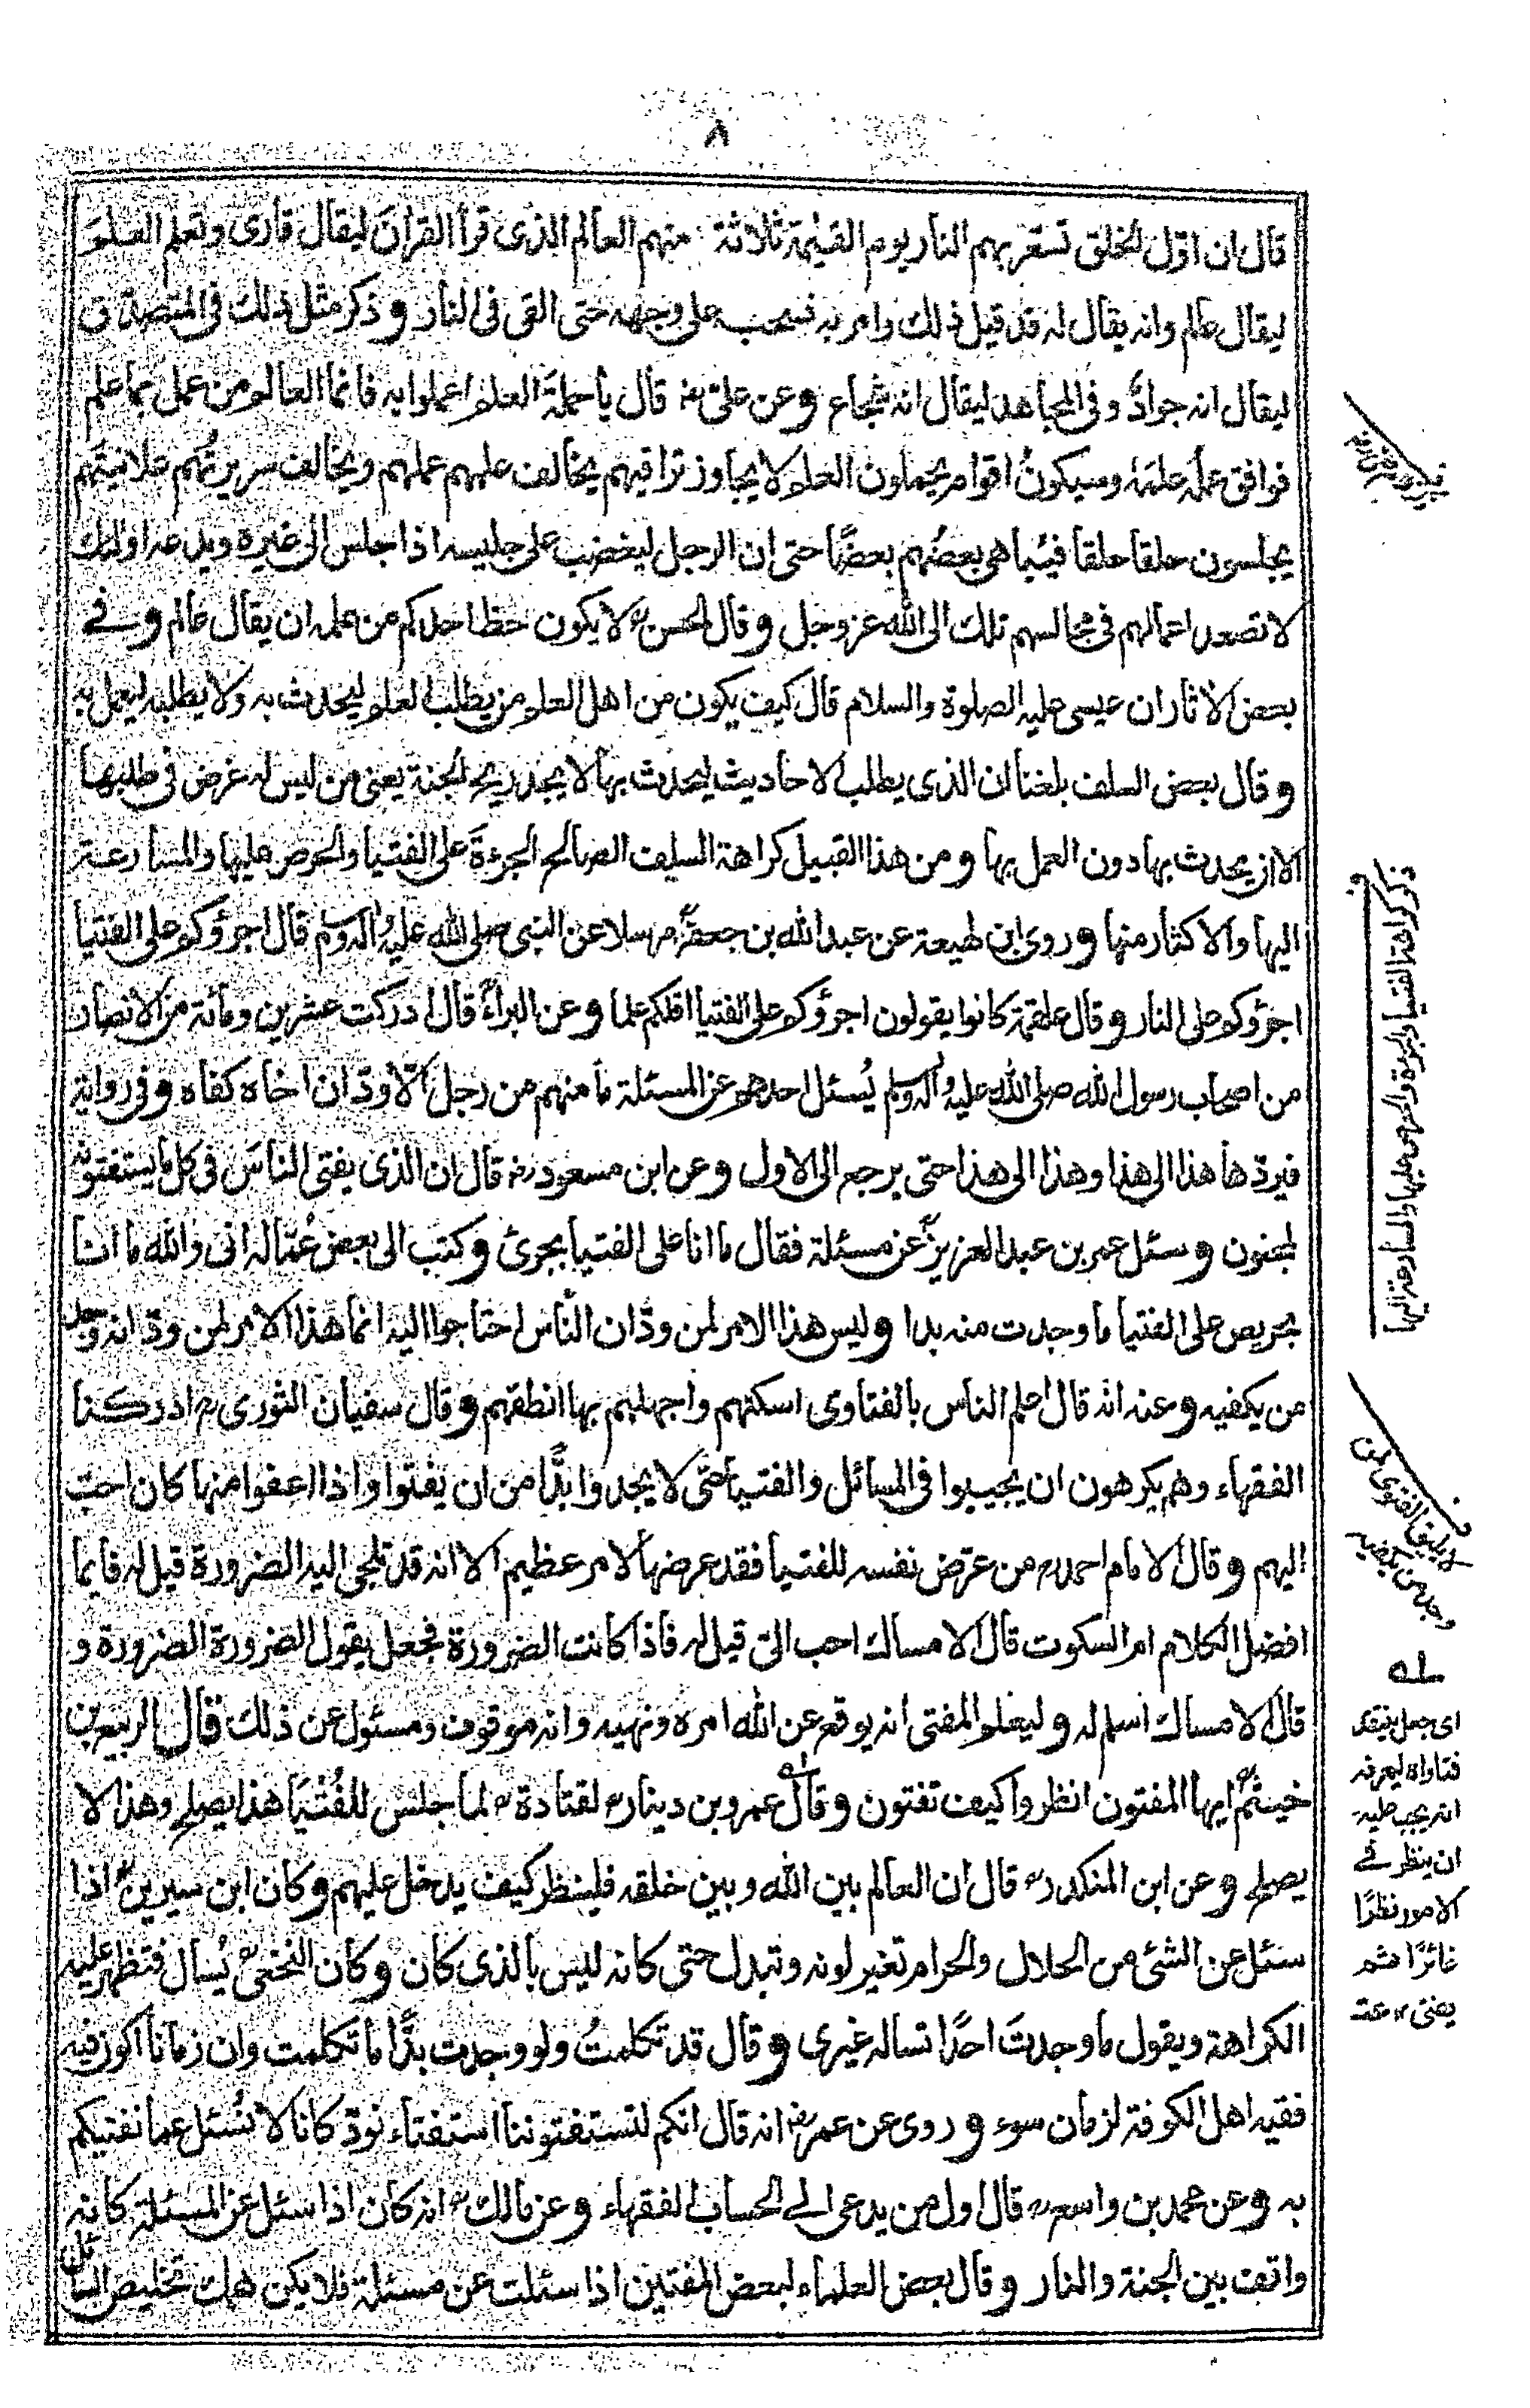 ٨
قال ان اوّل الخلق تسعّر بهم النار يوم القيٰمة ثلاثة منهم العالم الذى قرأ القراٰنَ ليقال قارى وتعلم العلمَ
ليقال عالم وانه يقال له قد قيل ذلك وامر به فسحب على وجهه حتى القى فى النار و ذكر مثل ذلك فى المتصدق
ليقال انه جوادٌ وفى المجاهد ليقال انه شجاع وعن على رضـ قال يا حملة العلم اعملوا به فانما العالم من عمل بما علم
فوافق عملُه علمَهٗ وسيكونُ اقوام يحملون العلم لا يجاوز تراقيهم يخالف علمهم عملهم ويخالف سريرتُهم علانيتَهم
يجلسون حلقا حلقا فيُباهى بعضُهم بعضًا حتى ان الرجل ليغضب على جليسه اذا جلس الى غيره ويدعه اولٰئك
لا تصعد اعمالهم فى مجالسهم تلك الى الله عزوجل و قال الحسنؒ لا يكون حظ احدكم من علمه ان يقال عالم و فے
بعض الاٰثار ان عيسى عليه الصلوة والسلام قال كيف يكون من اهل العلم من يطلب العلم ليحدث به ولا يطلبه ليعمل به
و قال بعض السلف بلغنا ان الذى يطلب الاحاديث ليحدث بها لا يجد ريح الجنة يعنى من ليس له غرض فى طلبها
الا ان يحدث بها دون العمل بها و من هذا القبيل كراهة السلف الصالح الجرءةَ على الفتيا والحرص عليها والمسارعة
اليها والاكثار منها و روى ابن لهيعة عن عبدالله بن جعفرؓ مرسلا عن النبى صلى الله عليه واٰله وسلم قال اجرؤكم على الفتيا
اجرؤكم على النار و قال علقمة كانوا يقولون اجرؤكم على الفتيا اقلكم علما و عن البراءؓ قال ادركت عشرين ومائة من الانصار
من اصحاب رسول الله صلى الله عليه واٰله وسلم يُسئل احدهم عن المسئلة ما منهم من رجل الّا ودّ ان اخاه كفاه و فى رواية
فيردّها هذا الى هذا وهذا الى هذا حتى يرجع الى الاول و عن ابن مسعود رضـ قال ان الذى يفتى الناسَ فى كل ما يستفتونه
لمجنون و سئل عمر بن عبد العزيزؒ عن مسئلة فقال ما انا على الفتيا بجرئ و كتب الى بعض عُمّاله انى والله ما انا
بحريص على الفتيا ما وجدت منه بدا و ليس هذا الامر لمن ودّ ان النّاس احتاجوا اليه انما هذا الامر لمن ودّ انه وجد
من يكفيه و عنه انه قال اعلم الناس بالفتاوى اسكتهم واجهلهم بها انطقهم و قال سفيان الثورى رح ادركنا
الفقهاء وهم يكرهون ان يجيبوا فى المسائل والفتيا حتّى لا يجدوا بدًّا من ان يفتوا واذا اعفوا منها كان احبّ
اليهم و قال الامام احمدرح من عرّض نفسه للفتيا فقد عرضها لامر عظيم الا انه قد تلجى اليه الضرورة قيل له فايما
افضل الكلام ام السكوت قال الامساك احب الىّ قيل له فاذا كانت الضرورة فجعل يقول الضرورة الضرورة و
قال الامساك اسلم له و ليعلم المفتى انه يوقع عن الله امره ونهيه وانه موقوف ومسئول عن ذلك قال الربيع بن
خيثمؒ ايها المفتون انظروا كيف تفتون و قال عمرو بن ديناررح لقتادةرح لما جلس للفُتْيَا هذا يصلح وهذا لا
يصلح و عن ابن المنكدررح قال ان العالم بين الله وبين خلقه فلينظر كيف يدخل عليهم و كان ابن سيرينؒ اذا
سئل عن الشئ من الحلال والحرام تغير لونه وتبدل حتى كانه ليس بالذى كان و كان النخعىؒ يُسال فتظهر عليه
الكراهة ويقول ما وجدتَ احدًا تساله غيرى و قال قد تكلمتُ ولو وجدت بدًّا ما تكلمت وان زمانا اكون فيه
فقيه اهل الكوفة لزمان سوء و روى عن عمررضـ انه قال انكم لتستفتوننا استفتاء قوم كانا لا نُسئل عما نفتيكم
به و عن محمد بن واسعرح قال اول من يدعى الى الحساب الفقهاء و عن مالكرح انه كان اذا سئل عن المسئلة كانه
واقف بين الجنة والنار و قال بعض العلماء لبعض المفتين اذا سئلت عن مسئلة فلا يكن همك تخليص السائل
ذكر كراهة الفتيا والجرءة والحرص عليها والمسارعة اليها
لا يليق الفتوى لمن
وجد من يكفيه
لـه
اى جعل ينتقد
فتاواه ليعرفه
انه يجب عليه
ان ينظر فے
الامور نظرًا
غائرًا ثم
يفتى ١٢ عـه